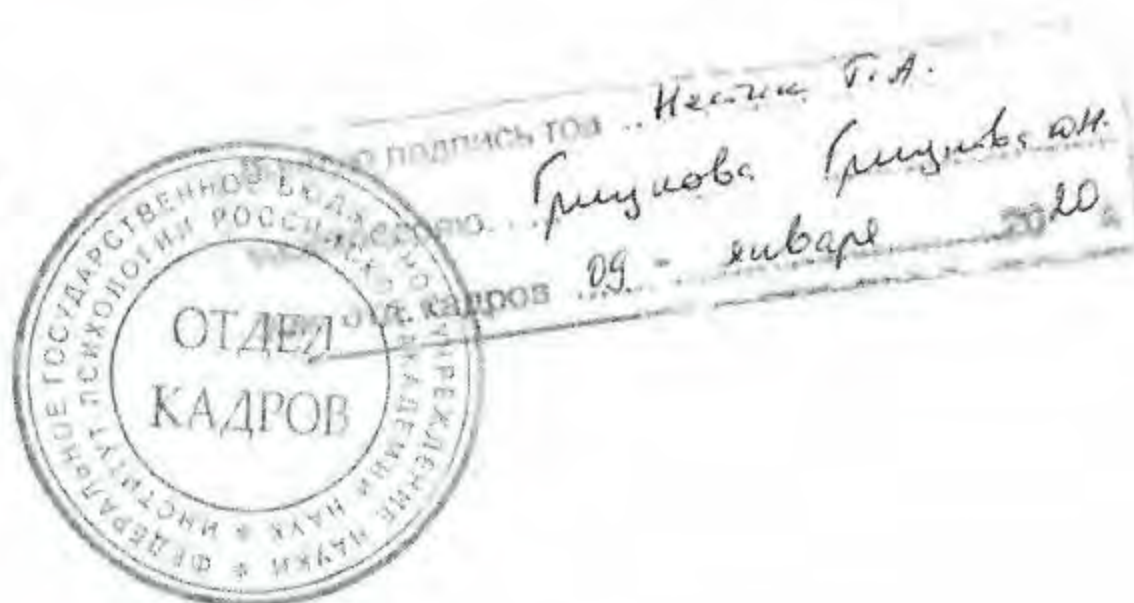 подпись тов .. Нестик Т.А.
удостоверяю... Грищкова Грищкова Ю.Н.
отд. кадров 09 - января 2020
ФЕДЕРАЛЬНОЕ ГОСУДАРСТВЕННОЕ БЮДЖЕТНОЕ УЧРЕЖДЕНИЕ НАУКИ *
ИНСТИТУТ ПСИХОЛОГИИ РОССИЙСКОЙ АКАДЕМИИ НАУК *
ОТДЕЛ
КАДРОВ